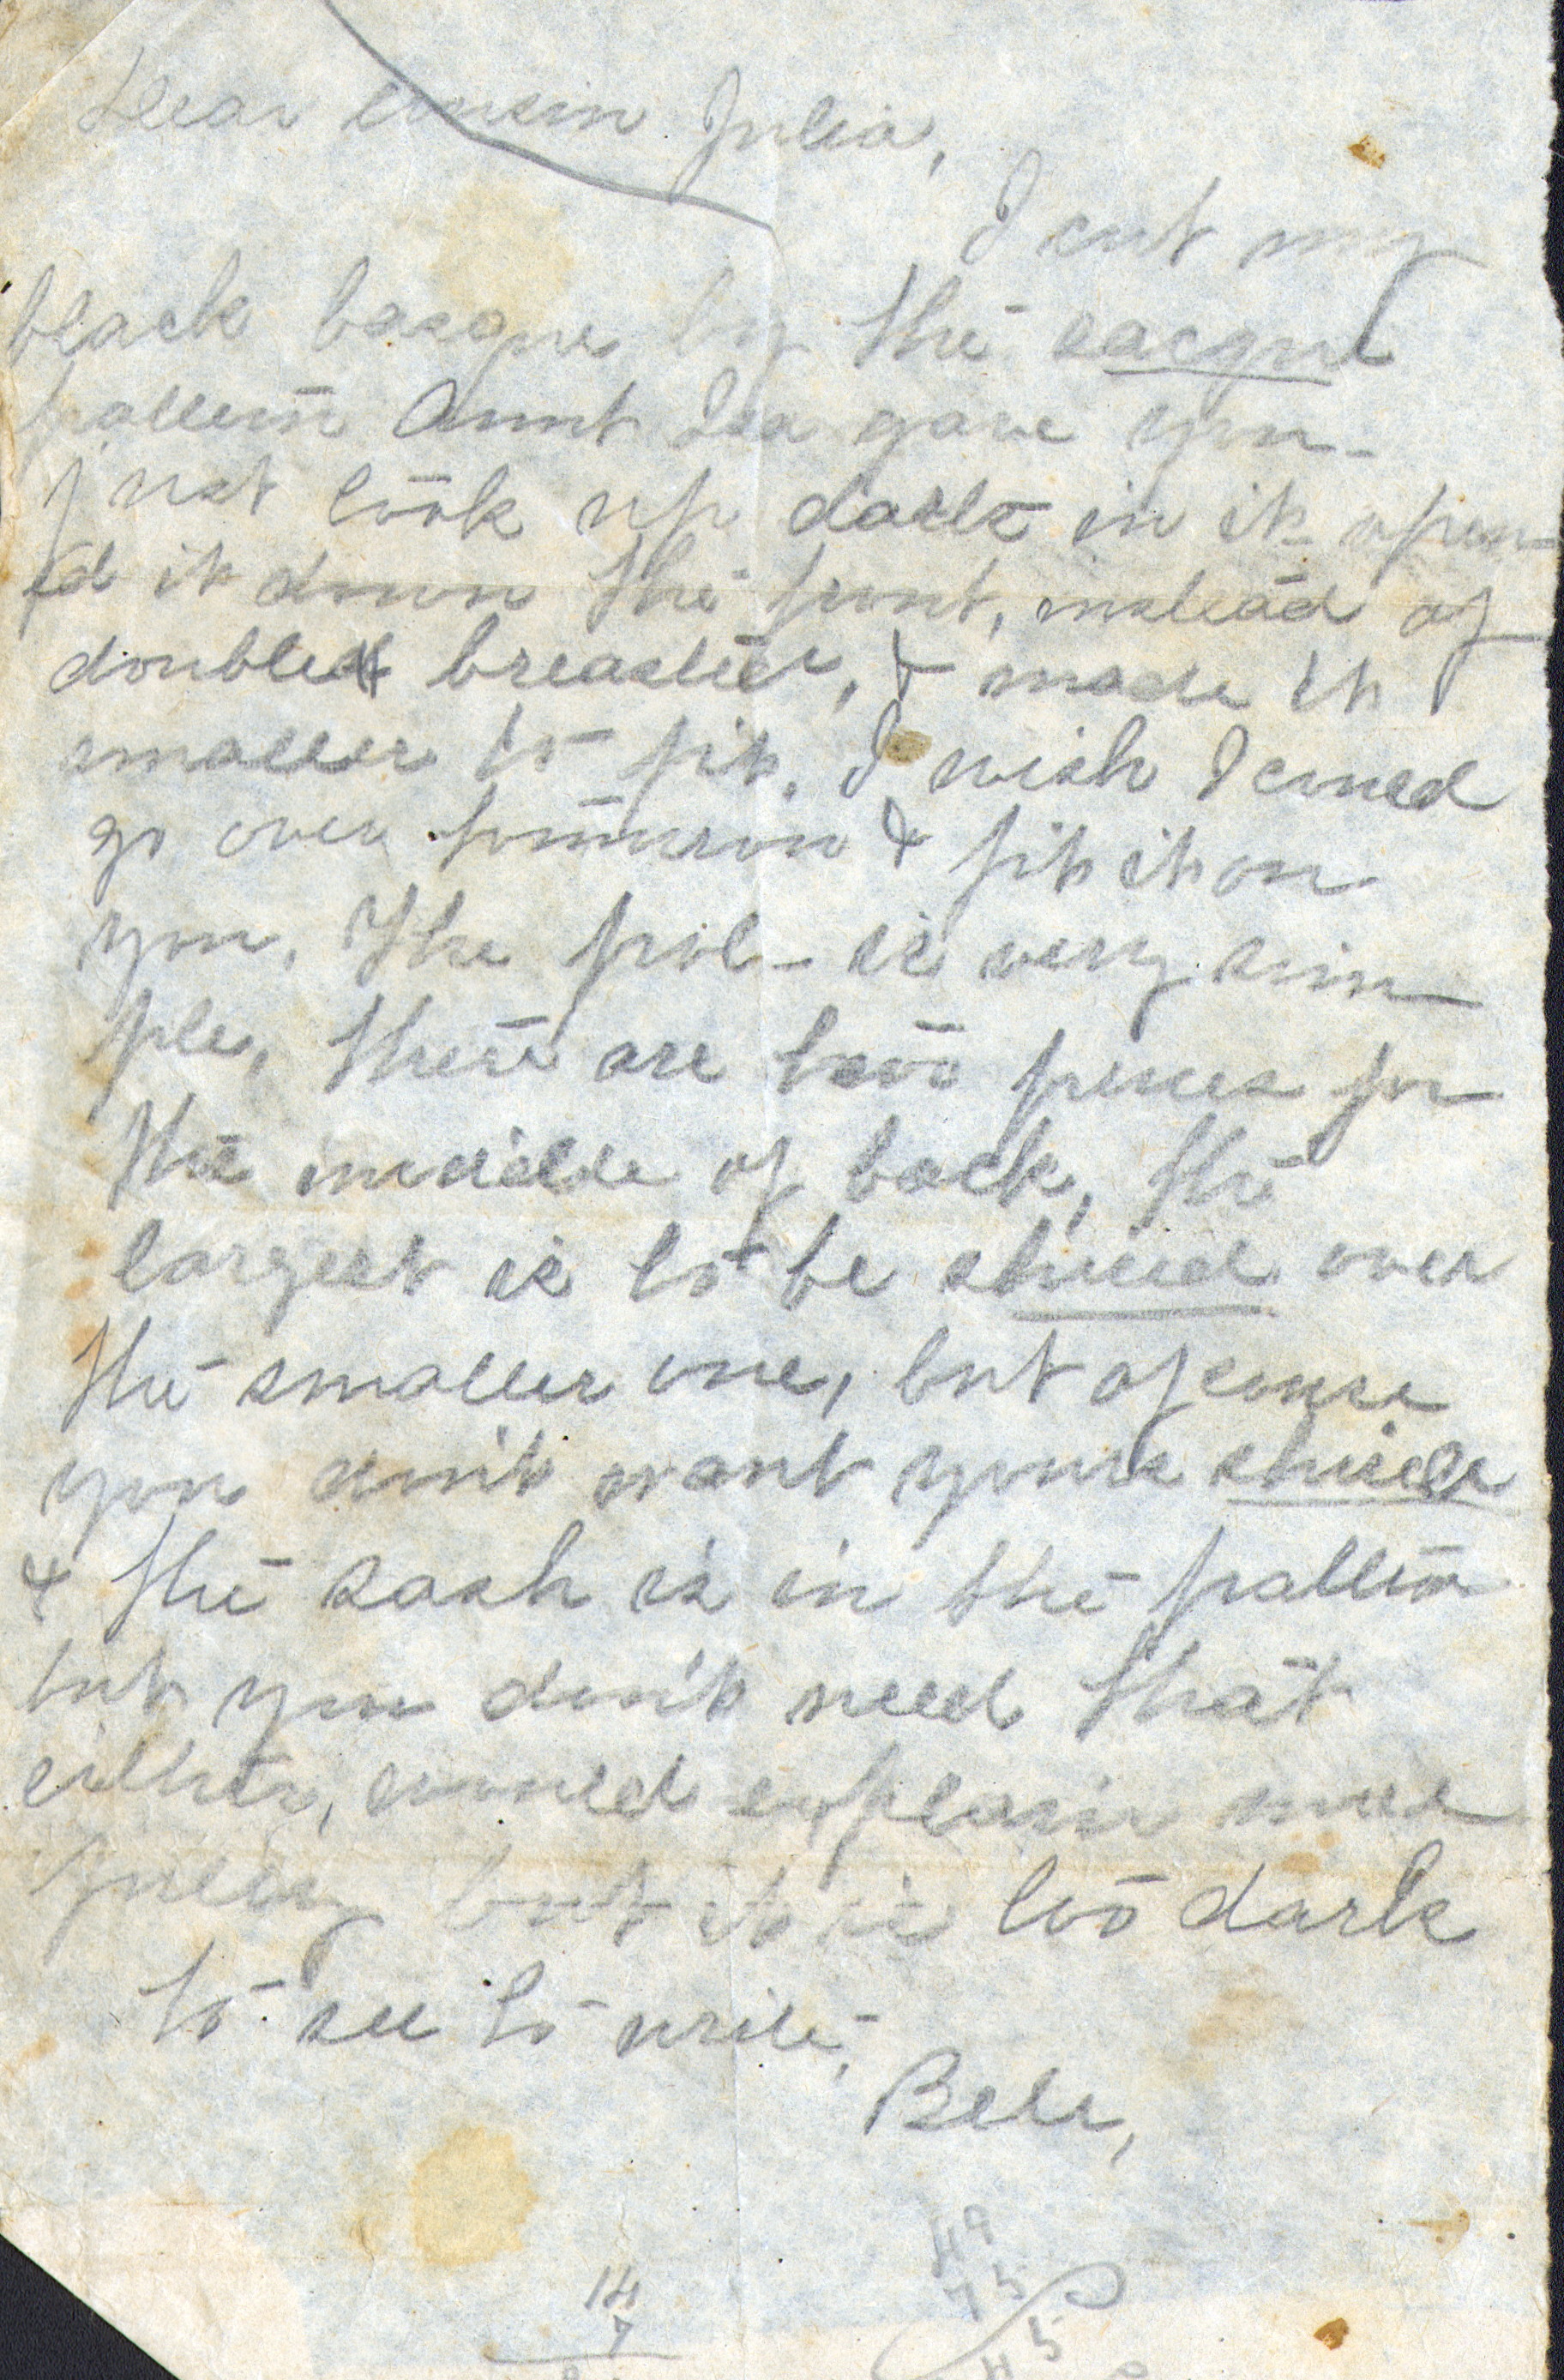 Dear cousin Julia,
I cut my
black basque by the sacque
pattern Aunt Lea gave you -
just took up darts in it - open-
ed it down the front, instead of
double breasted, & made it
smaller to fit. I wish I could
go over tomorrow & fit it on
you. The pat - is very sim-
ple, there are two pieces for
the middle of back, the
largest is to be shirred over
the smaller one, but of course
you don't want yours shirred
& the sash is in the pattern
but you don't need that
either, would explain more
fully but it is too dark
to see to write,
Bele,
14
7
49
75
45